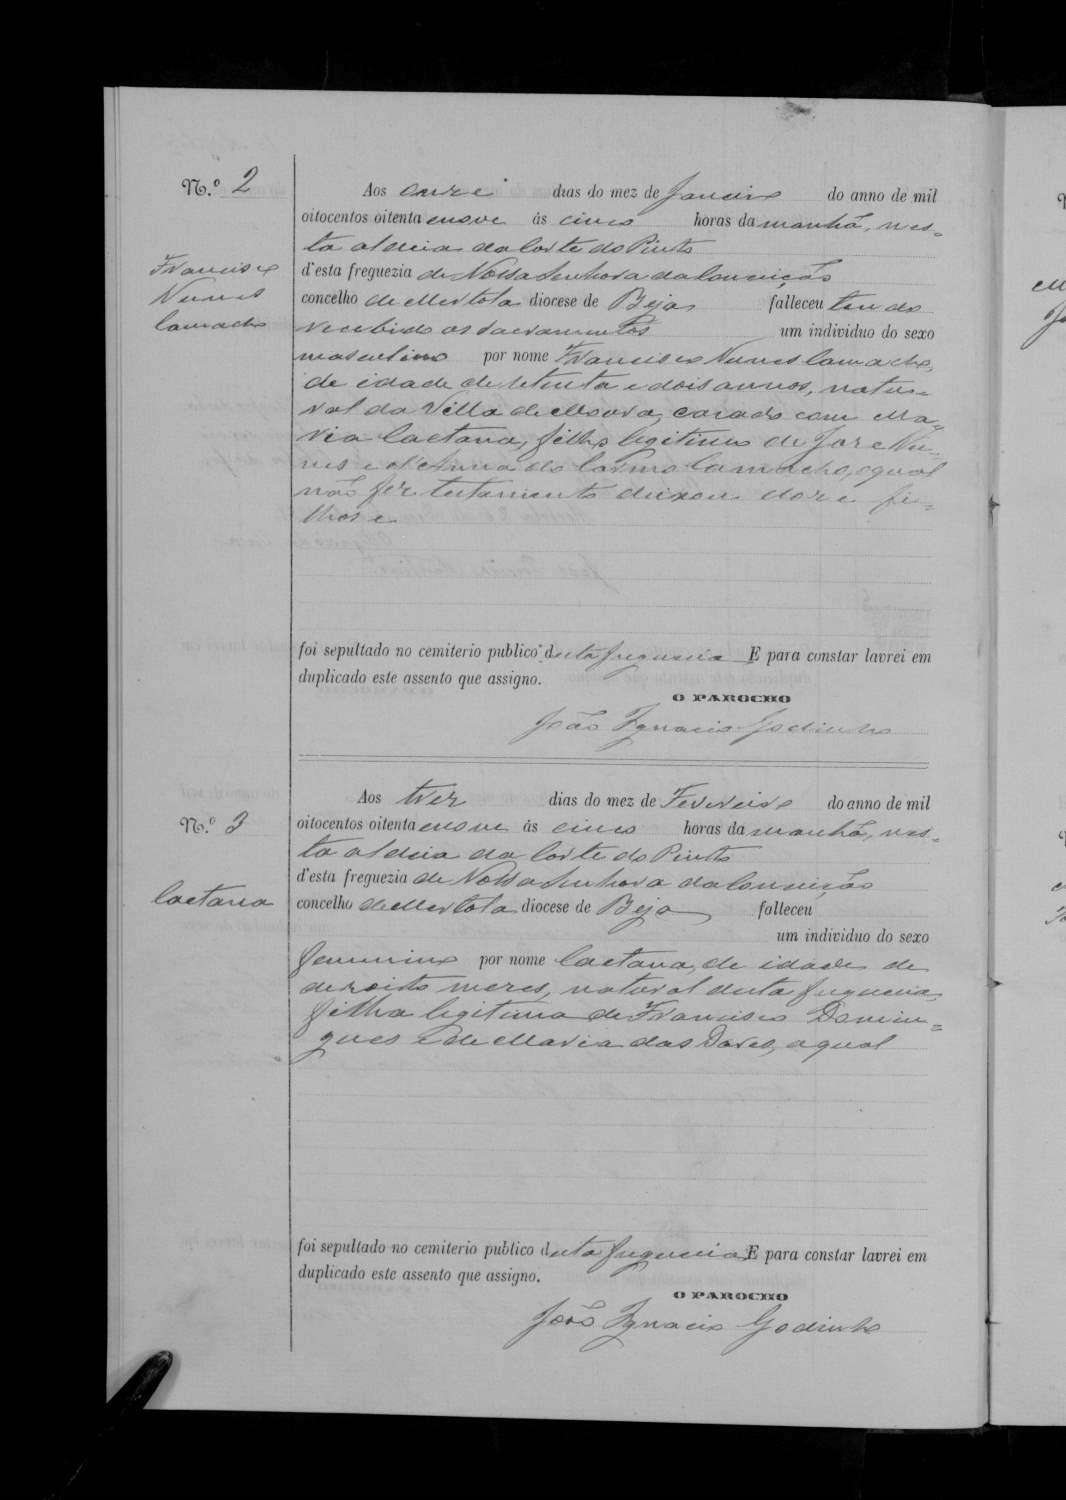 N.º 2
Aos onze dias do mez de Janeiro do anno de mil
oitocentos oitenta e nove ás cinco horas da manhã, nes-
ta aldeia da Corte do Pinto
d'esta freguezia de Nossa Senhora da Conceição
concelho de Mertola diocese de Beja falleceu tendo
recebido os sacramentos um individuo do sexo
masculino por nome Francisco Nunes Camacho,
de idade de setenta e dois annos, natu-
ral da Villa de Moura, casado com Ma-
ria Caetana, filho legitimo de José Nu-
nes e d'Anna do Carmo Camacho, o qual
não fez testamento deixou doze fi-
lhos e
Francisco
Nunes
Camacho
foi sepultado no cemiterio publico desta freguesia E para constar lavrei em
duplicado este assento que assigno.
O PAROCHO
João Ignacio Godinho
N.º 3
Aos trez dias do mez de Fevereiro do anno de mil
oitocentos oitenta e nove ás cinco horas da manhã, nes-
ta aldeia da Corte do Pinto
d'esta freguezia de Nossa Senhora da Conceição
concelho de Mertola diocese de Beja falleceu
um individuo do sexo
femenino por nome Caetana, de idade de
dezoito mezes, natural desta freguesia,
filha legitima de Francisco Domin-
gues e de Maria das Dores, a qual
Caetana
foi sepultado no cemiterio publico desta freguesia E para constar lavrei em
duplicado este assento que assigno.
O PAROCHO
João Ignacio Godinho